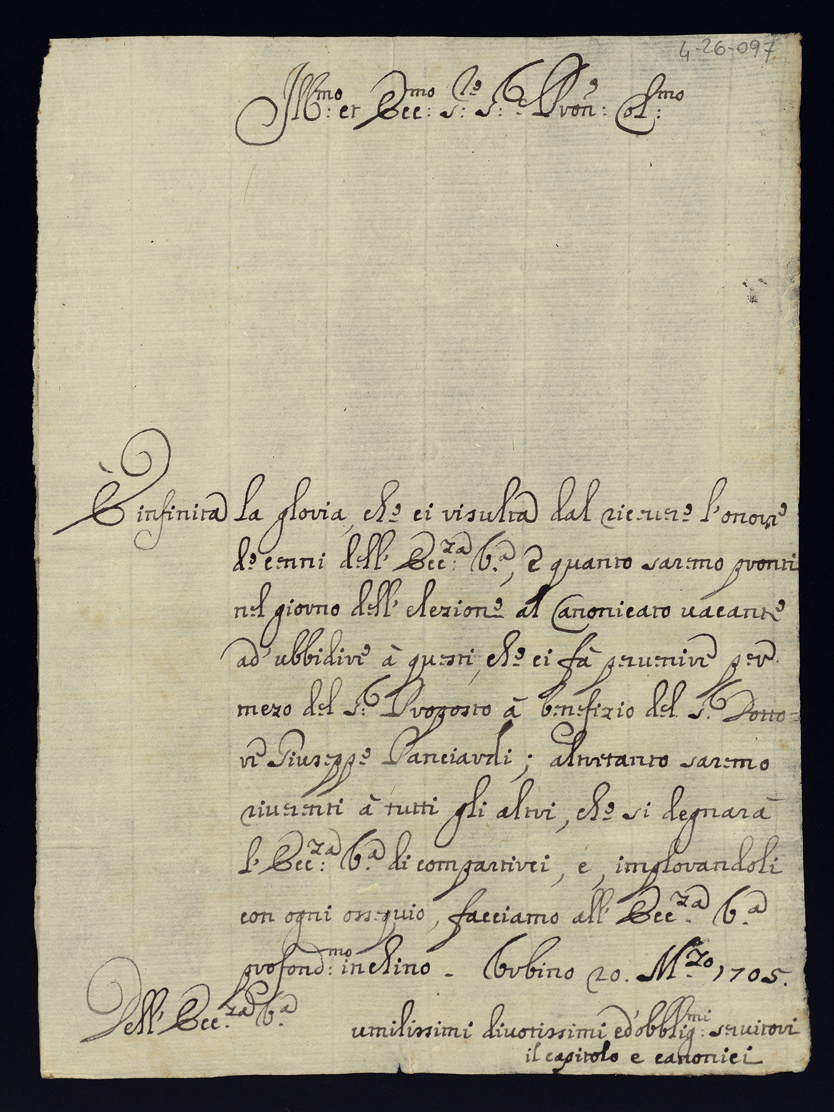 4-26-097
Ill:mo et Ecc:mo S:re S:r Pron:e Col:mo
È infinita la gloria, che ci risulta dal riceuere l'onore
de cenni dell' Ecc:za V:a, e quanto saremo pronti
nel giorno dell' elezione al Canonicato uacante
ad' ubbidire à questi, che ci fà peruenire per
mezo del S:r Proposto à benefizio del S:r Dotto=
re Giuseppe Panciardi; altretanto saremo
riuerenti à tutti gli altri, che si degnarà
l' Ecc:za V:a di compartirci, e, implorandoli
con ogni ossequio, facciamo all' Ecc:za V:a
profond:mo inchino - Vrbino 20. M:zo 1705.
Dell' Ecc:za V:a
umilissimi diuotissimi ed' obblig:mi seruitori
il capitolo e canonici